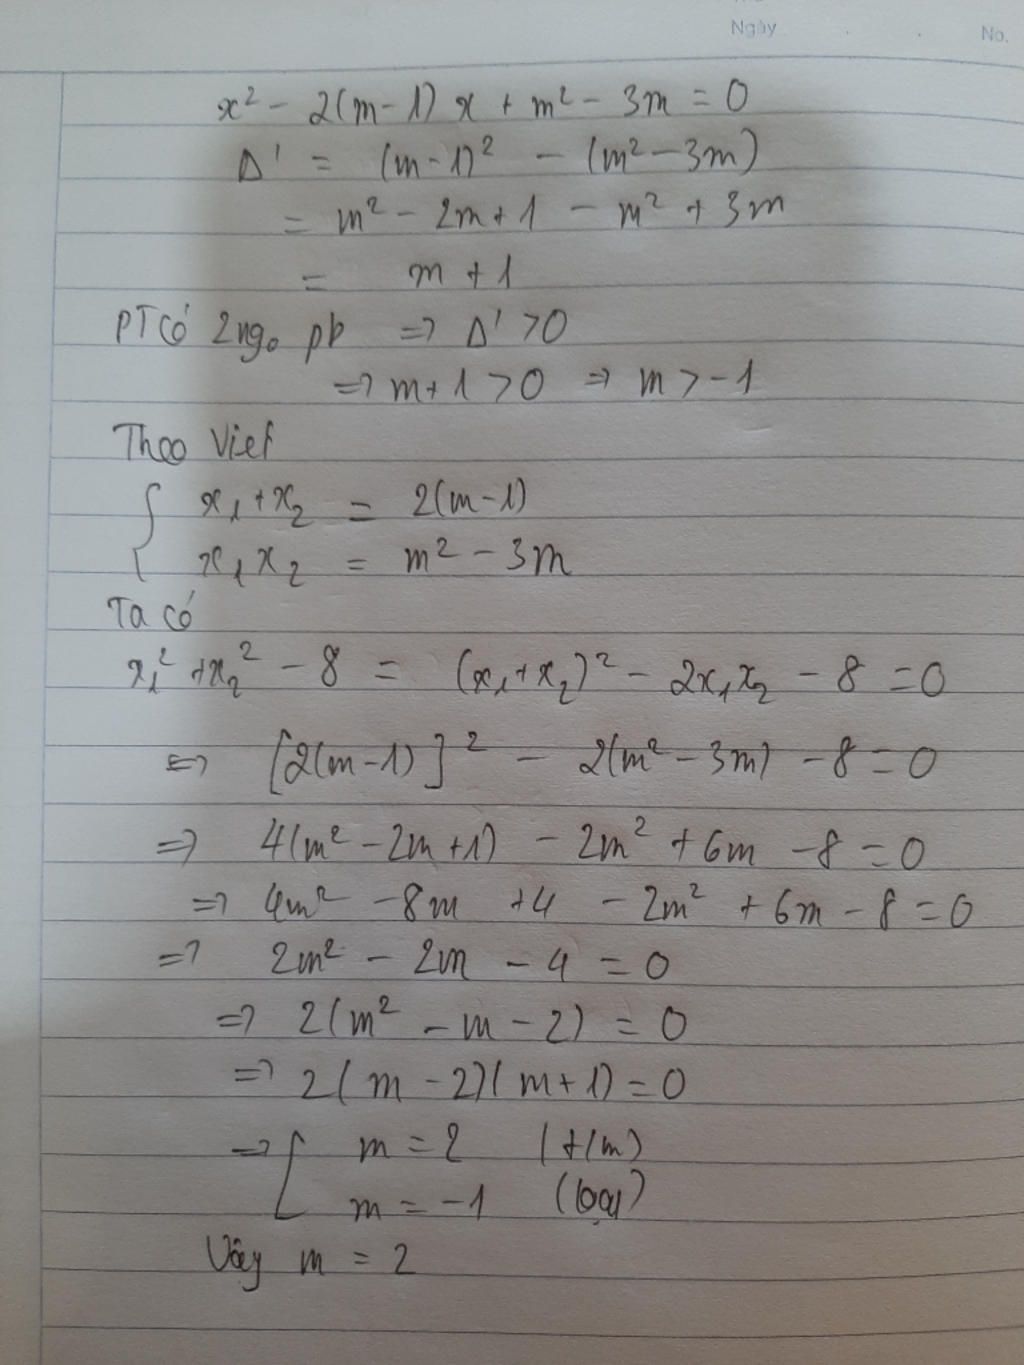 Ngày
No.
x² - 2(m-1)x + m² - 3m = 0
Δ' = (m-1)² - (m² - 3m)
= m² - 2m + 1 - m² + 3m
= m + 1
PT có 2 ngo pb => Δ' > 0
=> m + 1 > 0 => m > -1
Theo Viet
{ x₁ + x₂ = 2(m-1)
x₁x₂ = m² - 3m
Ta có
x₁² + x₂² - 8 = (x₁ + x₂)² - 2x₁x₂ - 8 = 0
<=> [2(m-1)]² - 2(m² - 3m) - 8 = 0
=> 4(m² - 2m + 1) - 2m² + 6m - 8 = 0
=> 4m² - 8m + 4 - 2m² + 6m - 8 = 0
=> 2m² - 2m - 4 = 0
=> 2(m² - m - 2) = 0
=> 2(m - 2)(m + 1) = 0
=> [ m = 2 (t/m)
m = -1 (loại)
Vậy m = 2